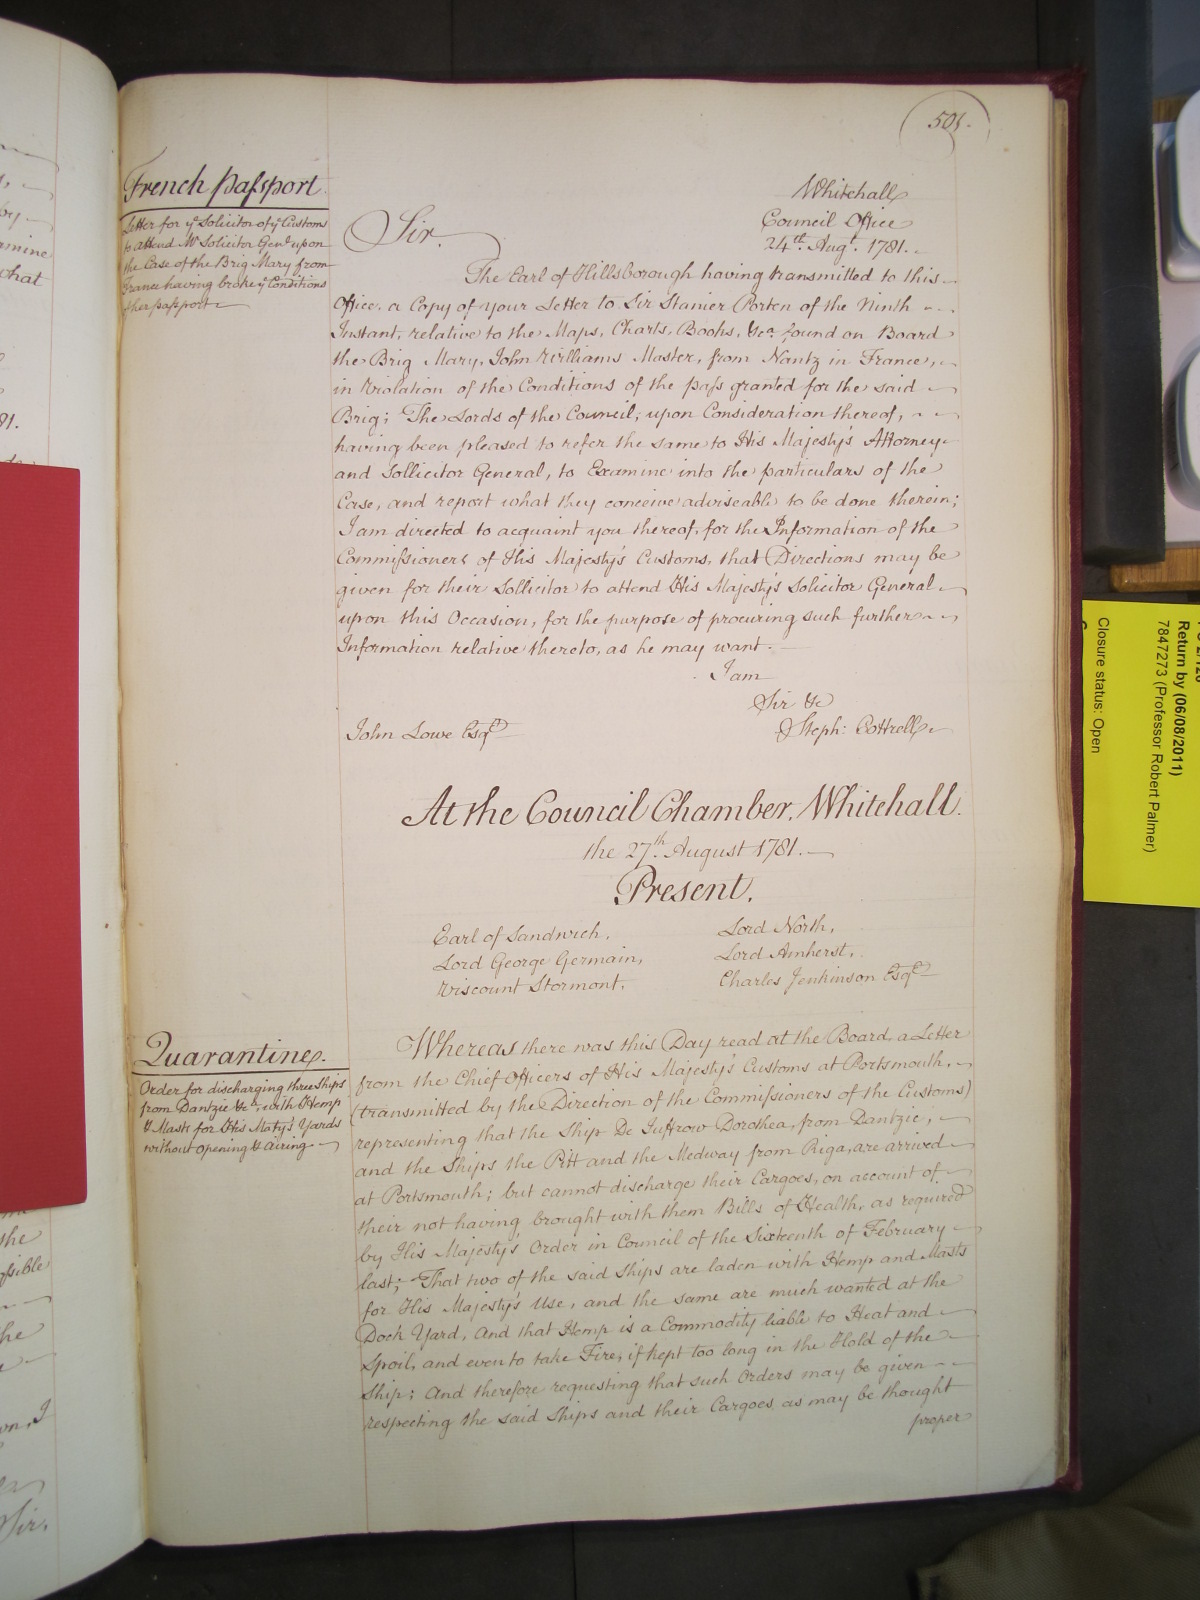 501.
French passport
Letter for ye Solicitor of ye Customs
to attend Mr Solicitor Genl upon
the Case of the Brig Mary from
France having broke ye Conditions
of her passport
Whitehall
Council Office
24th. Augt. 1781.
Sir.
The Earl of Hillsborough having transmitted to this
Office, a Copy of your Letter to Sir Stanier Porten of the Ninth
Instant, relative to the Maps, Charts, Books, &ca. found on Board
the Brig Mary, John Williams Master, from Nantz in France,
in Violation of the Conditions of the pass granted for the said
Brig; The Lords of the Council, upon Consideration thereof,
having been pleased to refer the same to His Majesty's Attorney
and Sollicitor General, to Examine into the particulars of the
Case, and report what they conceive adviseable to be done therein;
I am directed to acquaint you thereof, for the Information of the
Commissioners of His Majesty's Customs, that Directions may be
given for their Sollicitor to attend His Majesty's Solicitor General
upon this Occasion, for the purpose of procuring such further
Information relative thereto, as he may want.
I am
Sir &c
John Lowe Esqr.
Steph: Cottrell
At the Council Chamber, Whitehall.
the 27th. August 1781.
Present,
Earl of Sandwich,
Lord George Germain,
Viscount Stormont,
Lord North,
Lord Amherst,
Charles Jenkinson Esqr.
Quarantine.
Order for discharging three Ships
from Dantzic &ca. with Hemp
& Masts for His Maty's Yards
without opening & airing
Whereas there was this Day read at the Board, a Letter
from the Chief Officers of His Majesty's Customs at Portsmouth,
(transmitted by the Direction of the Commissioners of the Customs)
representing that the Ship De Juffrow Dorothea, from Dantzic,
and the Ships the Pitt and the Medway from Riga, are arrived
at Portsmouth; but cannot discharge their Cargoes, on account of
their not having brought with them Bills of Health, as required
by His Majesty's Order in Council of the Sixteenth of February
last; That two of the said Ships are laden with Hemp and Masts
for His Majesty's Use, and the same are much wanted at the
Dock Yard, And that Hemp is a Commodity liable to Heat and
Spoil, and even to take Fire, if kept too long in the Hold of the
Ship; And therefore requesting that such Orders may be given
respecting the said Ships and their Cargoes, as may be thought
proper
Return by (06/08/2011)
7847273 (Professor Robert Palmer)
Closure status: Open